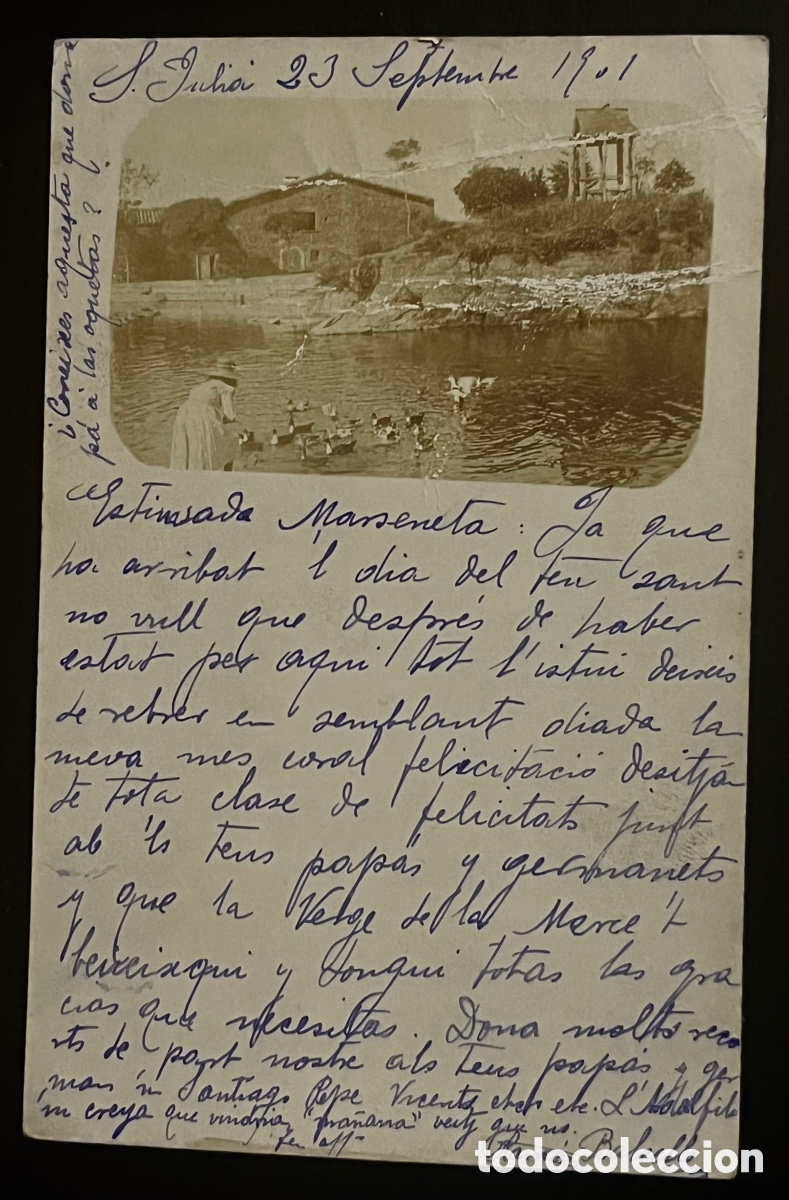 S. Juliá 23 Septembre 1901
¿Coneixes aquesta que dona
pá á las oquetas?
"Estimada Marseneta: Ja que
ha arribat 'l dia del teu sant
no vull que després de haber
estat per aqui tot l'istiu deixis
de rebrer en semblant diada la
meva mes coral felicitació desitján
te tota clase de felicitats junt
ab 'ls teus papás y germanets
y que la Verge de la Mercé 't
beneixqui y donqui totas las gra
cias que necesitas. Dona molts reco
rts de part nostre als teus papás y ger
mans Santiago Pepe Vicentz etc. L'Adolfito
creya que vindria "mañana" veitg que no.
teu aff
todocoleccion